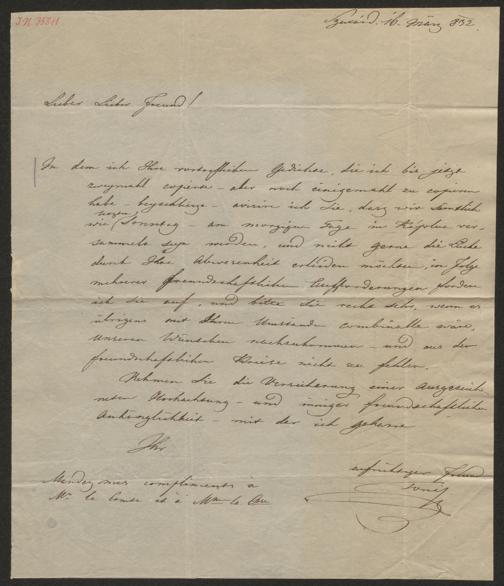 I.N. 
Szexárd. 16. März 832.
Lieber Lieber Freund!
In dem ich Ihre vortrefflichen Gedichte, die ich bis jetzt
zweymahl copierte – aber noch einigemahl zu copieren
habe – beyschliesse – avisire ich Sie, dass wir sämtlich
wie (Sonntag – am morgigen Tage in
sammelt seyn werden, und nicht gerne die Lücke
durch Ihre Abwesenheit erleiden möchten, in Folge
mehrerer freundschaftlichen Aufforderungen fordere
ich Sie auf, und bitte Sie recht sehr, wenn es
übrigens mit Ihren Umständen combinable wäre,
unseren Wünschen nachzukommen – und aus der
freundschaftlichen Kreise nicht zu fehlen.
Nehmen Sie die Versicherung einer ausgezeich
neten Hochachtung – und inniger freundschaftlichen
Anhänglichkeit – mit der ich geharre
Ihr
aufrichtiger Freund
Mandez mes compliments a
Mr. le Comte et à Mme la